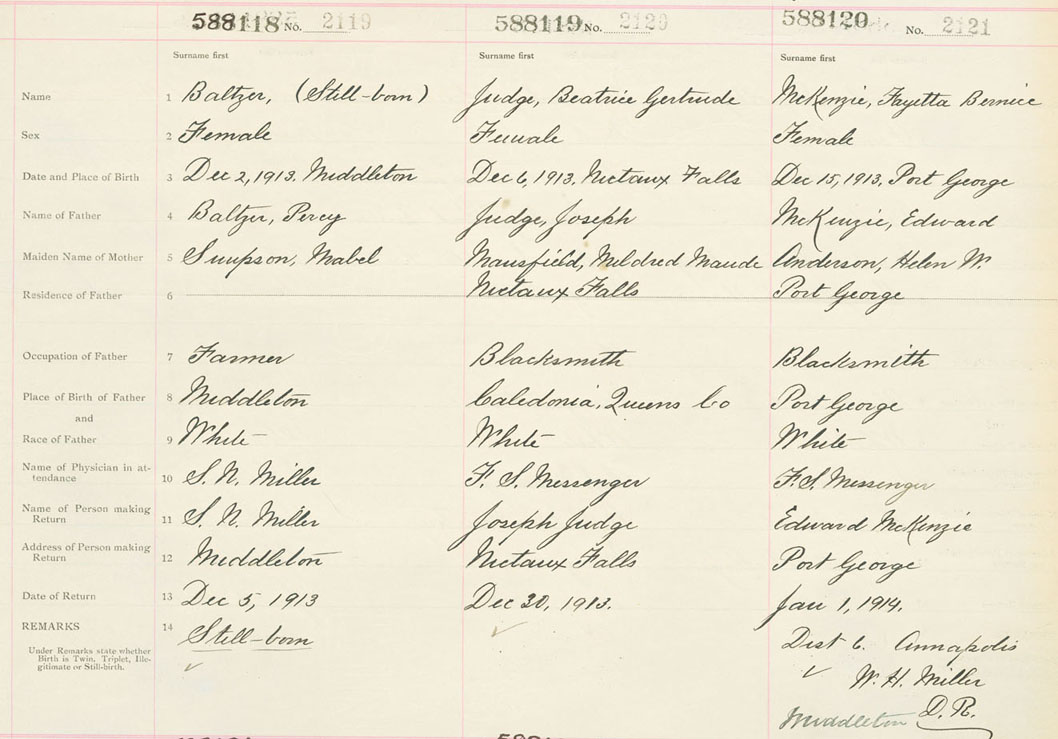 588118 No. 2119 588119 No. 2120 588120 No. 2121
Surname first Surname first Surname first
Name 1 Baltzer, (Still-born) Judge, Beatrice Gertrude McKenzie, Fayetta Bernice
Sex 2 Female Female Female
Date and Place of Birth 3 Dec 2, 1913. Middleton Dec 6, 1913. Nictaux Falls Dec 15, 1913. Port George
Name of Father 4 Baltzer, Percy Judge, Joseph McKenzie, Edward
Maiden Name of Mother 5 Simpson, Mabel Mansfield, Mildred Maude Anderson, Helen W.
Residence of Father 6 Nictaux Falls Port George
Occupation of Father 7 Farmer Blacksmith Blacksmith
Place of Birth of Father 8 Middleton Caledonia, Queens Co Port George
and
Race of Father 9 White White White
Name of Physician in at-
tendance 10 S. N. Miller F. S. Messenger F. S. Messenger
Name of Person making
Return 11 S. N. Miller Joseph Judge Edward McKenzie
Address of Person making
Return 12 Middleton Nictaux Falls Port George
Date of Return 13 Dec 5, 1913 Dec 30, 1913. Jan 1, 1914.
REMARKS 14 Still-born Dist 6. Annapolis
Under Remarks state whether
Birth is Twin, Triplet, Ille-
gitimate or Still-birth.
W. H. Miller
Middleton D. R.